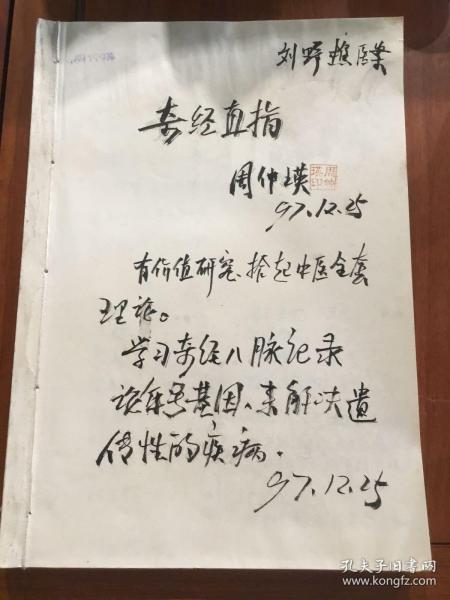 刘野樵医案
奇经直指
周仲瑛
97.12.25
有价值研究、拾起中医全套
理论。
学习奇经八脉记录
基因、来解决遗
传性的疾病.
97.12.25
孔夫子旧书网
www.kongfz.com